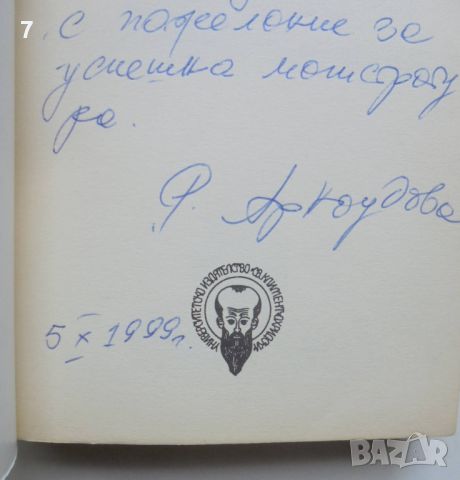 7
с пожелание за
успешна магистрату
ра.
Р. Аркоудова
УНИВЕРСИТЕТСКО ИЗДАТЕЛСТВО „СВ. КЛИМЕНТ ОХРИДСКИ“
5 X 1999 г.
BAZAR